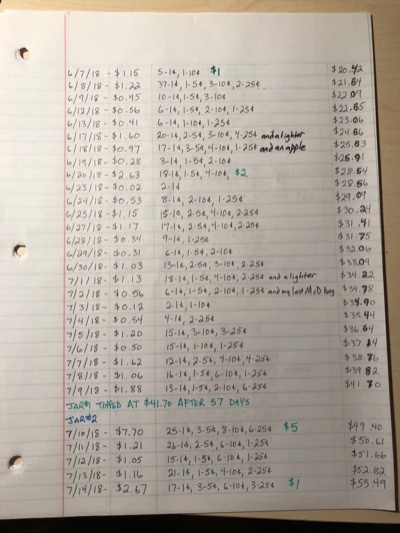 6/7/18 - $1.15 5-1¢, 1-10¢ $1 $20.42
6/8/18 - $1.22 37-1¢, 1-5¢, 3-10¢, 2-25¢ $21.64
6/9/18 - $0.45 10-1¢, 1-5¢, 3-10¢ $22.09
6/12/18 - $0.56 6-1¢, 1-5¢, 2-10¢, 1-25¢ $22.65
6/13/18 - $0.41 6-1¢, 1-10¢, 1-25¢ $23.06
6/17/18 - $1.60 20-1¢, 2-5¢, 3-10¢, 4-25¢ and a lighter $24.66
6/18/18 - $0.97 17-1¢, 3-5¢, 4-10¢, 1-25¢ and an apple $25.63
6/19/18 - $0.28 3-1¢, 1-5¢, 2-10¢ $25.91
6/20/18 - $2.63 18-1¢, 1-5¢, 4-10¢, $2 $28.54
6/23/18 - $0.02 2-1¢ $28.56
6/24/18 - $0.53 8-1¢, 2-10¢, 1-25¢ $29.09
6/25/18 - $1.15 15-1¢, 2-5¢, 4-10¢, 2-25¢ $30.24
6/27/18 - $1.17 17-1¢, 2-5¢, 4-10¢, 2-25¢ $31.41
6/28/18 - $0.34 9-1¢, 1-25¢ $31.75
6/29/18 - $0.31 6-1¢, 1-5¢, 2-10¢ $32.06
6/30/18 - $1.03 13-1¢, 2-5¢, 3-10¢, 2-25¢ $33.09
7/1/18 - $1.13 18-1¢, 1-5¢, 4-10¢, 2-25¢ and a lighter $34.22
7/2/18 - $0.56 6-1¢, 1-5¢, 2-10¢, 1-25¢ and my last McD bag $34.78
7/3/18 - $0.12 2-1¢, 1-10¢ $34.90
7/4/18 - $0.54 4-1¢, 2-25¢ $35.44
7/5/18 - $1.20 15-1¢, 3-10¢, 3-25¢ $36.64
7/6/18 - $0.50 15-1¢, 1-10¢, 1-25¢ $37.14
7/7/18 - $1.62 12-1¢, 2-5¢, 4-10¢, 4-25¢ $38.76
7/8/18 - $1.06 16-1¢, 1-5¢, 6-10¢, 1-25¢ $39.82
7/9/18 - $1.88 13-1¢, 1-5¢, 2-10¢, 6-25¢ $41.70
JAR#1 TOPPED AT $41.70 AFTER 57 DAYS
JAR#2
7/10/18 - $7.70 25-1¢, 3-5¢, 8-10¢, 6-25¢ $5 $49.40
7/11/18 - $1.21 26-1¢, 2-5¢, 6-10¢, 1-25¢ $50.61
7/12/18 - $1.05 15-1¢, 1-5¢, 6-10¢, 1-25¢ $51.66
7/13/18 - $1.16 21-1¢, 1-5¢, 4-10¢, 2-25¢ $52.82
7/14/18 - $2.67 17-1¢, 3-5¢, 6-10¢, 3-25¢ $1 $55.49